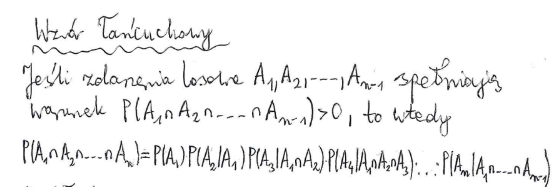 Wzór Łańcuchowy
Jeśli zdarzenia losowe A₁, A₂, ---, Aₙ₋₁ spełniają
warunek P(A₁∩A₂∩---∩Aₙ₋₁)>0, to wtedy
P(A₁∩A₂∩---∩Aₙ)=P(A₁)P(A₂|A₁)P(A₃|A₁∩A₂)·P(A₄|A₁∩A₂∩A₃)·...·P(Aₙ|A₁∩---∩Aₙ₋₁)